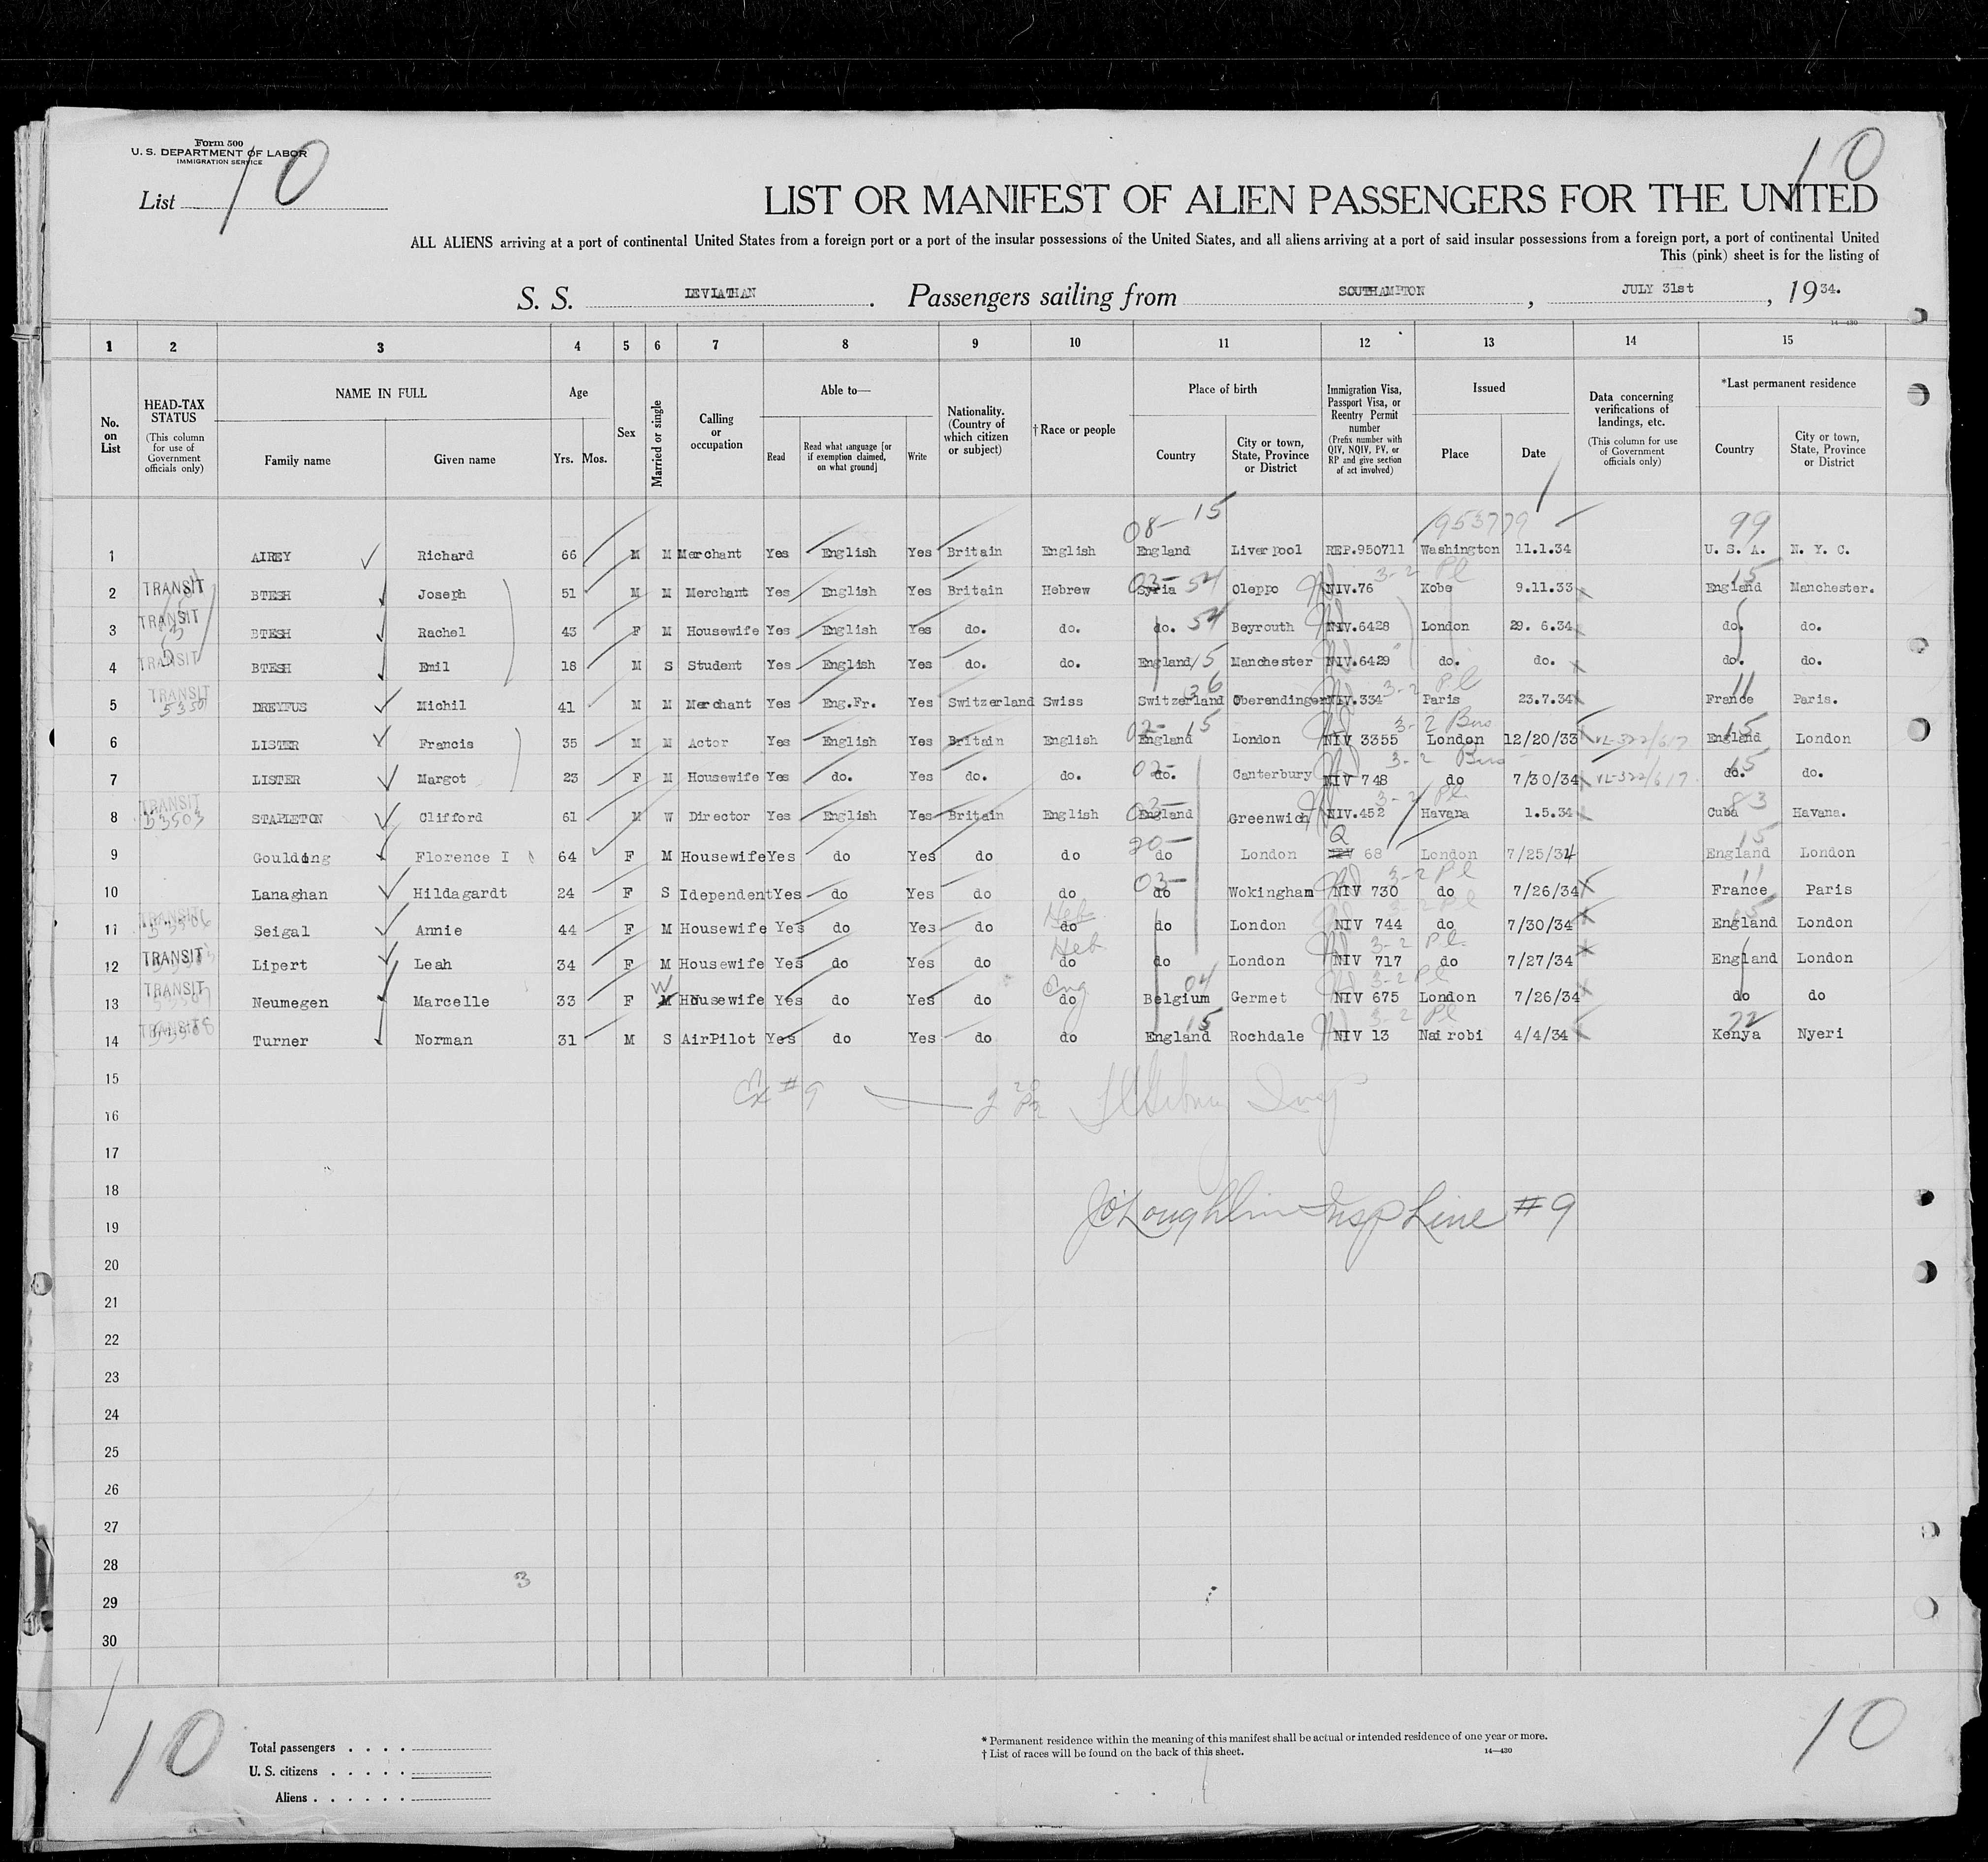 Form 500
U. S. DEPARTMENT OF LABOR
IMMIGRATION SERVICE
List 10
10
LIST OR MANIFEST OF ALIEN PASSENGERS FOR THE UNITED
ALL ALIENS arriving at a port of continental United States from a foreign port or a port of the insular possessions of the United States, and all aliens arriving at a port of said insular possessions from a foreign port, a port of continental United
This (pink) sheet is for the listing of
S. S. LEVIATHAN . Passengers sailing from SOUTHAMPTON , JULY 31st , 1934.
14—430
1 2 3 4 5 6 7 8 9 10 11 12 13 14 15
No. on List
HEAD-TAX STATUS (This column for use of Government officials only)
NAME IN FULL Family name Given name
Age Yrs. Mos.
Sex
Married or single
Calling or occupation
Able to— Read Read what language [or if exemption claimed, on what ground] Write
Nationality. (Country of which citizen or subject)
†Race or people
Place of birth Country City or town, State, Province or District
Immigration Visa, Passport Visa, or Reentry Permit number (Prefix number with QIV, NQIV, PV, or RP and give section of act involved)
Issued Place Date
Data concerning verifications of landings, etc. (This column for use of Government officials only)
*Last permanent residence Country City or town, State, Province or District
08- 15 953779 99
1 AIREY Richard 66 M M Merchant Yes English Yes Britain English England Liverpool REP.950711 Washington 11.1.34 U. S. A. N. Y. C.
03- 54 3-2 Pl 15
2 TRANSIT BTESH Joseph 51 M M Merchant Yes English Yes Britain Hebrew Syria Oleppo NIV.76 Kobe 9.11.33 England Manchester.
3 TRANSIT BTESH Rachel 43 F M Housewife Yes English Yes do. do. do. 54 Beyrouth NIV.6428 London 29. 6.34 do. do.
4 TRANSIT BTESH Emil 18 M S Student Yes English Yes do. do. England 15 Manchester NIV.6429 do. do. do. do.
36 3-2 Pl 11
5 TRANSIT DREYFUS Michil 41 M M Merchant Yes Eng.Fr. Yes Switzerland Swiss Switzerland Oberendingen NIV.334 Paris 23.7.34 France Paris.
02- 15 3-2 Bus 15
6 LISTER Francis 35 M M Actor Yes English Yes Britain English England London NIV 3355 London 12/20/33 VL-322/617 England London
02- 3-2 Bus 15
7 LISTER Margot 23 F M Housewife Yes do. Yes do. do. do. Canterbury NIV 748 do 7/30/34 VL-322/617 do. do.
03- 3-2 Pl 83
8 TRANSIT 53503 STAPLETON Clifford 61 M W Director Yes English Yes Britain English England Greenwich NIV.452 Havana 1.5.34 Cuba Havana.
20- Q 15
9 Goulding Florence I 64 F M Housewife Yes do Yes do do do London 68 London 7/25/34 England London
03- 3-2 Pl 11
10 Lanaghan Hildagardt 24 F S Idependent Yes do Yes do do do Wokingham NIV 730 do 7/26/34 France Paris
Heb 3-2 Pl 15
11 TRANSIT Seigal Annie 44 F M Housewife Yes do Yes do do do London NIV 744 do 7/30/34 England London
Heb 3-2 Pl
12 TRANSIT Lipert Leah 34 F M Housewife Yes do Yes do do do London NIV 717 do 7/27/34 England London
W Eng 04 3-2 Pl
13 TRANSIT Neumegen Marcelle 33 F M Housewife Yes do Yes do do Belgium Germet NIV 675 London 7/26/34 do do
15 3-2 Pl 22
14 TRANSIT Turner Norman 31 M S AirPilot Yes do Yes do do England Rochdale NIV 13 Nairobi 4/4/34 Kenya Nyeri
15
Ex #9
16
17
18
J O'Loughlin Insp Line #9
19
20
21
22
23
24
25
26
27
28
3
29
30
10
Total passengers . . . .
U. S. citizens . . . . .
Aliens . . . . . .
* Permanent residence within the meaning of this manifest shall be actual or intended residence of one year or more.
† List of races will be found on the back of this sheet. 14—430
10